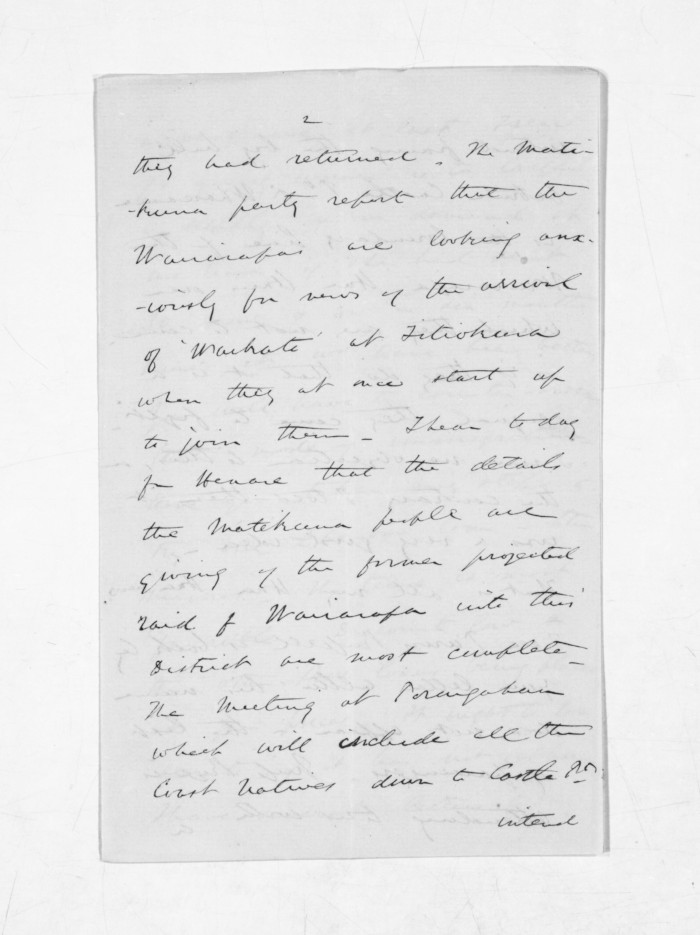 2
they had returned. The Mate-
-kuna party report that the
Wairarapas are looking anx-
-iously for news of the arrival
of 'Waikato' at Titiokura
when they at once start up
to join them - I hear to day
fr Henare that the details
the Matekuna people are
giving of the former projected
raid f Wairarapa into this
District are most complete -
The Meeting at Porangahau
which will include all the
Coast Natives down to Castle Pt
intend